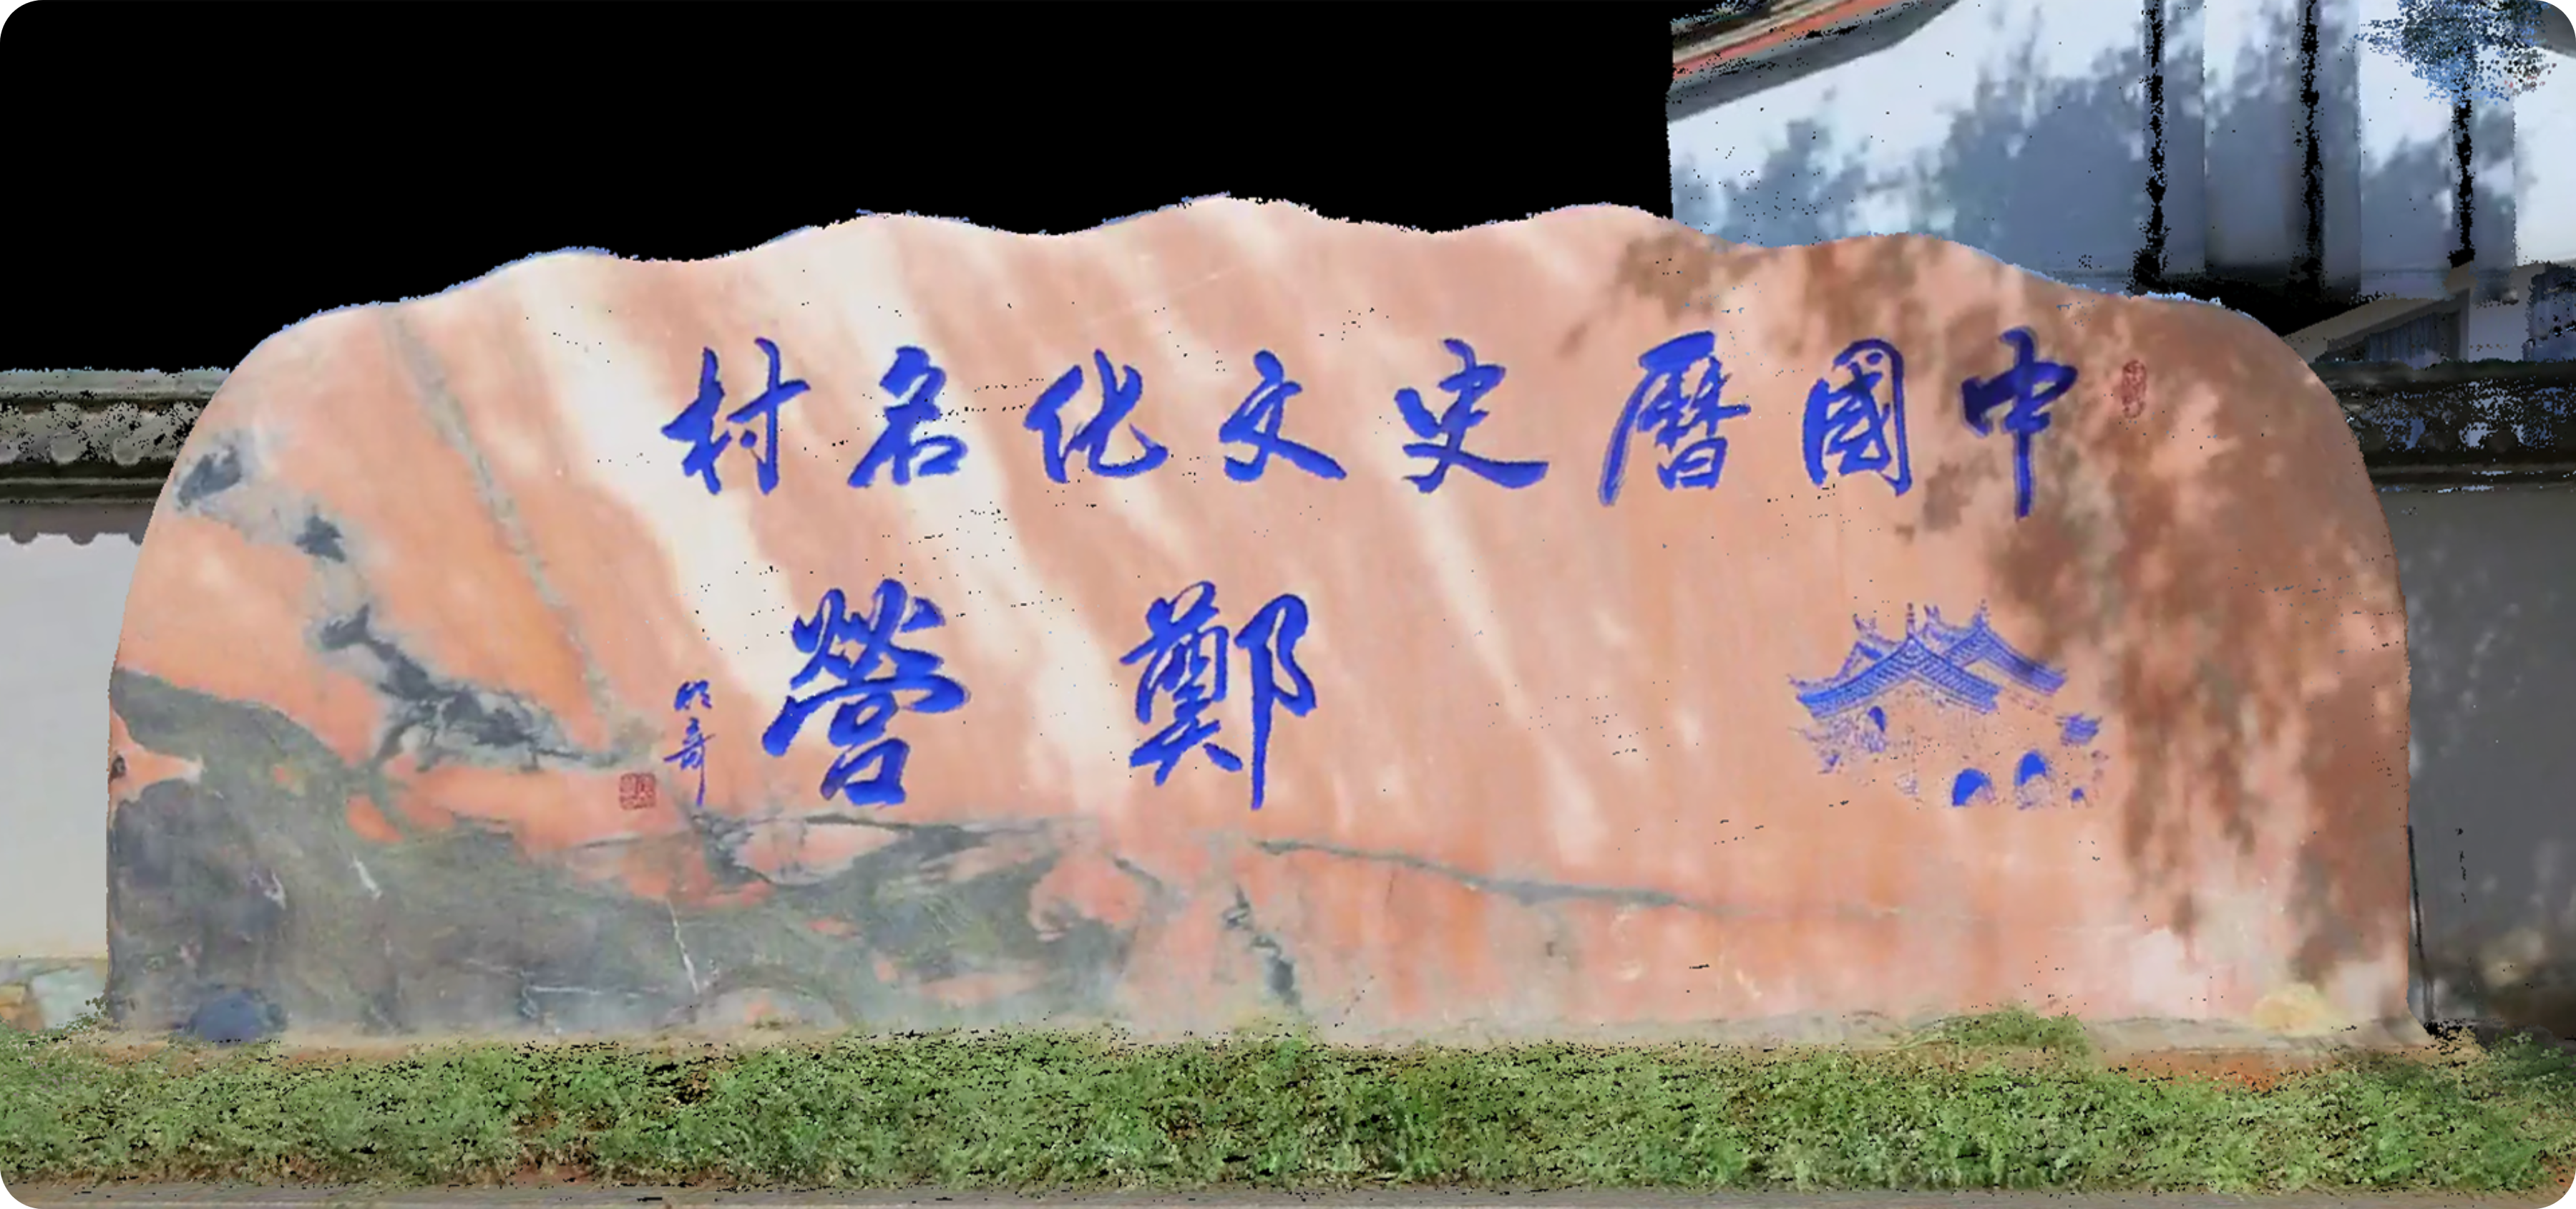 中國曆史文化名村
鄭營